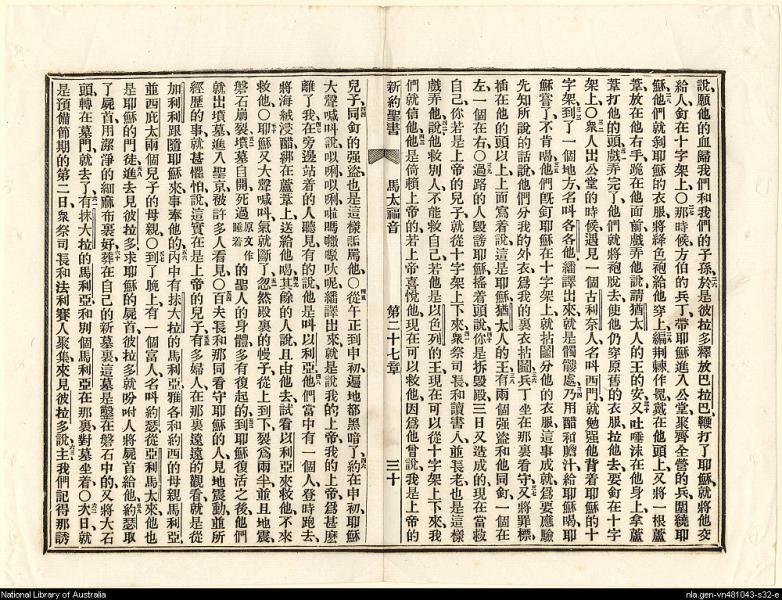 說願他的血歸我們和我們的子孫於是彼拉多釋放巴拉巴鞭打了耶穌就將他交
給人釘在十字架上○那時候方伯的兵丁帶耶穌進入公堂聚齊全營的兵圍繞耶
穌他們就剝耶穌的衣服將絳色袍給他穿上編荆棘作冕戴在他頭上又將一根蘆
葦放在他右手跪在他面前戲弄他說請猶太人的王的安又吐唾沫在他身上拿蘆
葦打他的頭戲弄完了他們就將袍脫去使他仍穿原舊的衣服拉他去要釘在十字
架上○衆人出公堂的時候遇見一個古利奈人名叫西門就勉强他背着耶穌的十
字架到了一個地方名叫各各他繙譯出來就是髑髏處乃用醋和膽汁給耶穌喝耶
穌嘗了不肯喝他們旣釘耶穌在十字架上就拈鬮分他的衣服這事成就爲要應驗
先知所說的話說他們分我的外衣爲我的裏衣拈鬮兵丁坐在那裏看守又將罪標
插在他的頭以上上面寫着說這是耶穌猶太人的王有兩個强盜和他同釘一個在
左一個在右○過路的人毀謗耶穌搖着頭說你是拆毀殿三日又造成的現在當救
自己你若是上帝的兒子就從十字架上下來衆祭司長和讀書人並長老也是這樣
戲弄他說他救別人不能救自己若他是以色列的王現在可以從十字架上下來我
們就信他他是倚賴上帝的若上帝喜悅他現在可以救他因爲他曾說我是上帝的
新約聖書 馬太福音 第二十七章 三十
兒子同釘的强盜也是這樣詬罵他○從午正到申初遍地都黑暗了約在申初耶穌
大聲喊叫說以唎以唎啦嗎撒嘅吠呢繙譯出來就是說我的上帝我的上帝爲甚麽
離了我在旁邊站着的人聽見有的說他是叫以利亞他們當中有一個人登時跑去
將海絨浸醋綁在蘆葦上送給他喝其餘的人說且由他去試看以利亞來救他不來
救他○耶穌又大聲喊叫氣就斷了忽然殿裏的幔子從上到下裂爲兩半並且地震
磐石崩裂墳墓自開死過原文作睡着的聖人的身體多有復起的到耶穌復活之後他們
就出墳墓進入聖京被許多人看見○百夫長和那同看守耶穌的人見地震動並所
經歷的事就甚懼怕說這實在是上帝的兒子有多婦人在那裏遠遠的觀看就是從
加利利跟隨耶穌來事奉他的內中有抹大拉的馬利亞雅各和約西的母親馬利亞
並西庇太兩個兒子的母親○到了晚上有一個富人名叫約瑟從亞利馬太來他也
是耶穌的門徒進去見彼拉多求耶穌的屍首彼拉多就吩咐人將屍首給他約瑟取
了屍首用潔淨的細麻布裹好葬在自己的新墓裏這墓是鑿在磐石中的又將大石
頭轉在墓門就去了有抹大拉的馬利亞和別個馬利亞在那裏對墓坐着○次日就
是預備節期的第二日衆祭司長和法利賽人聚集來見彼拉多說主我們記得那誘
National Library of Australia
nla.gen-vn481043-s32-e